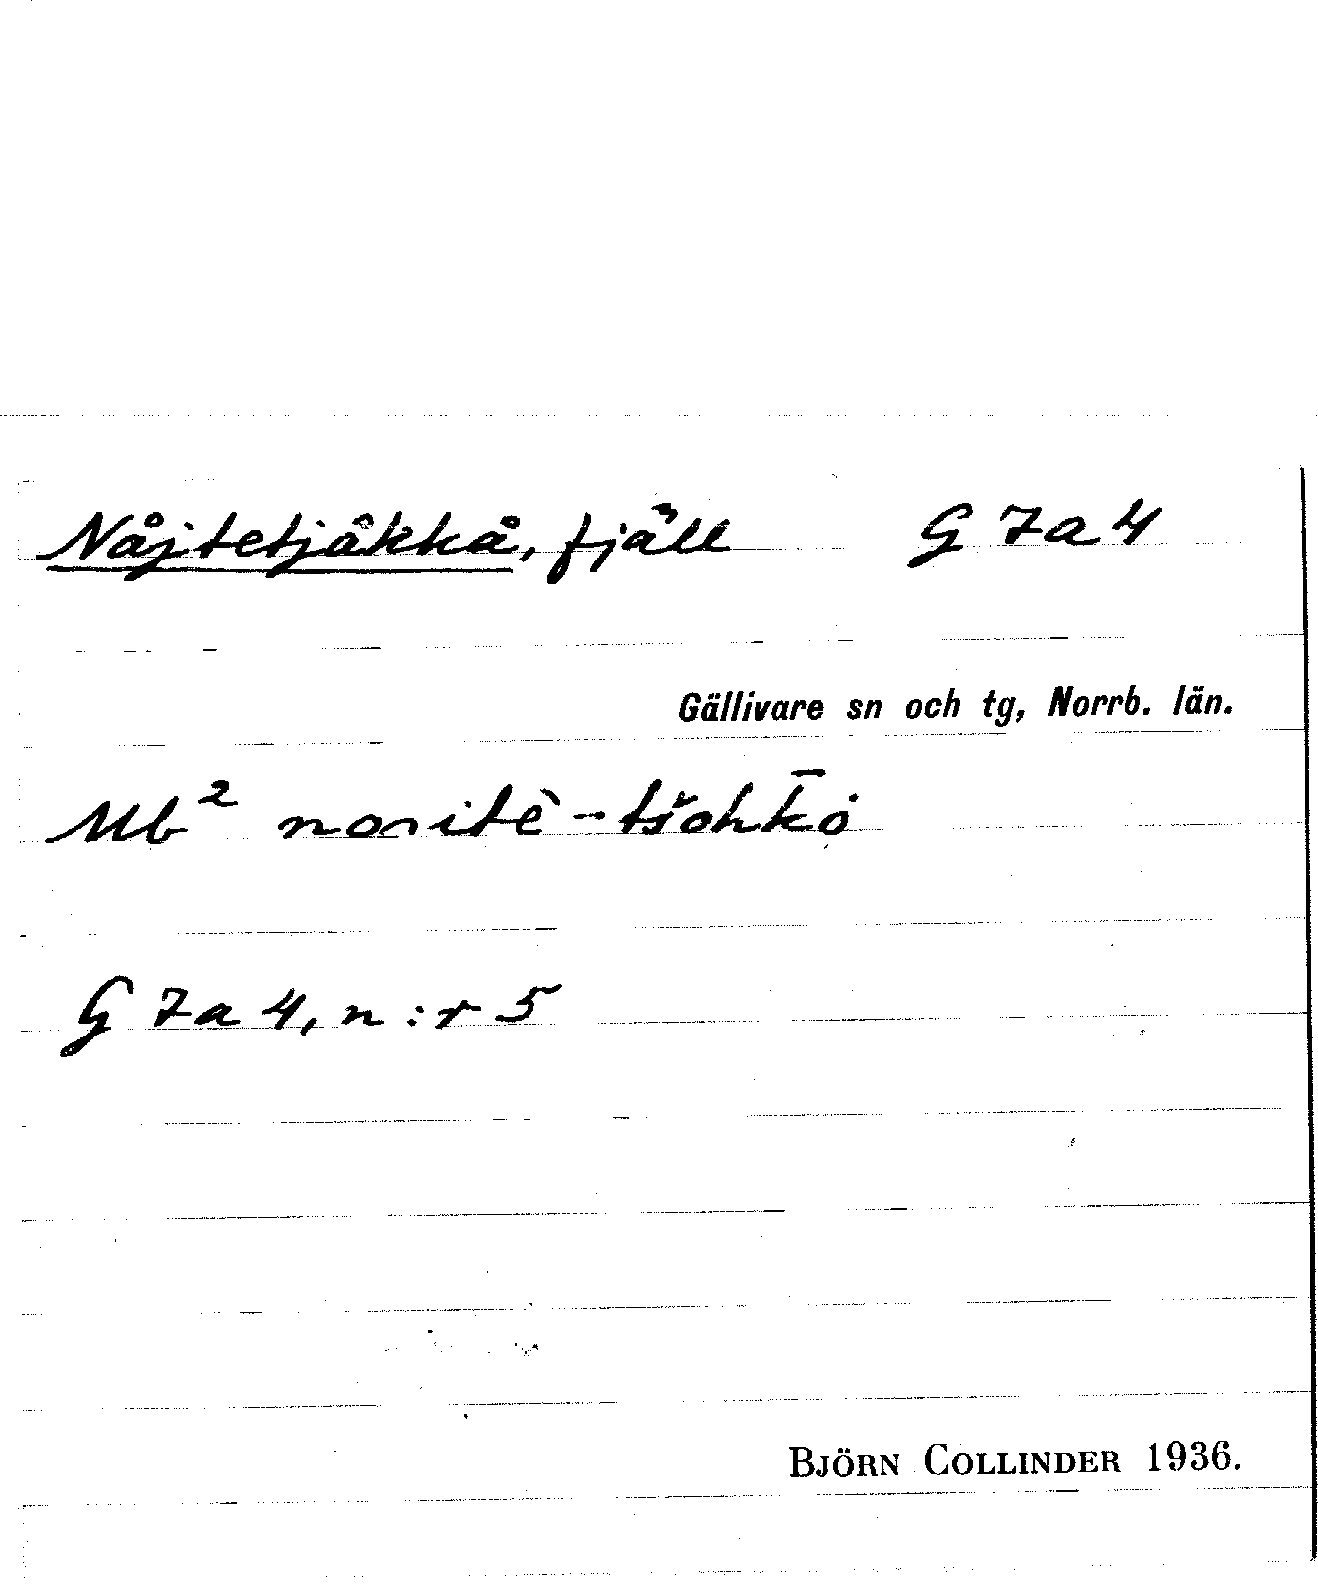 Nåjtetjåkkå, fjäll G 7a4
Gällivare sn och tg, Norrb. län.
Mb² noritè-tšohk̄ȧ
G 7a 4, n:r 5
BJÖRN COLLINDER 1936.